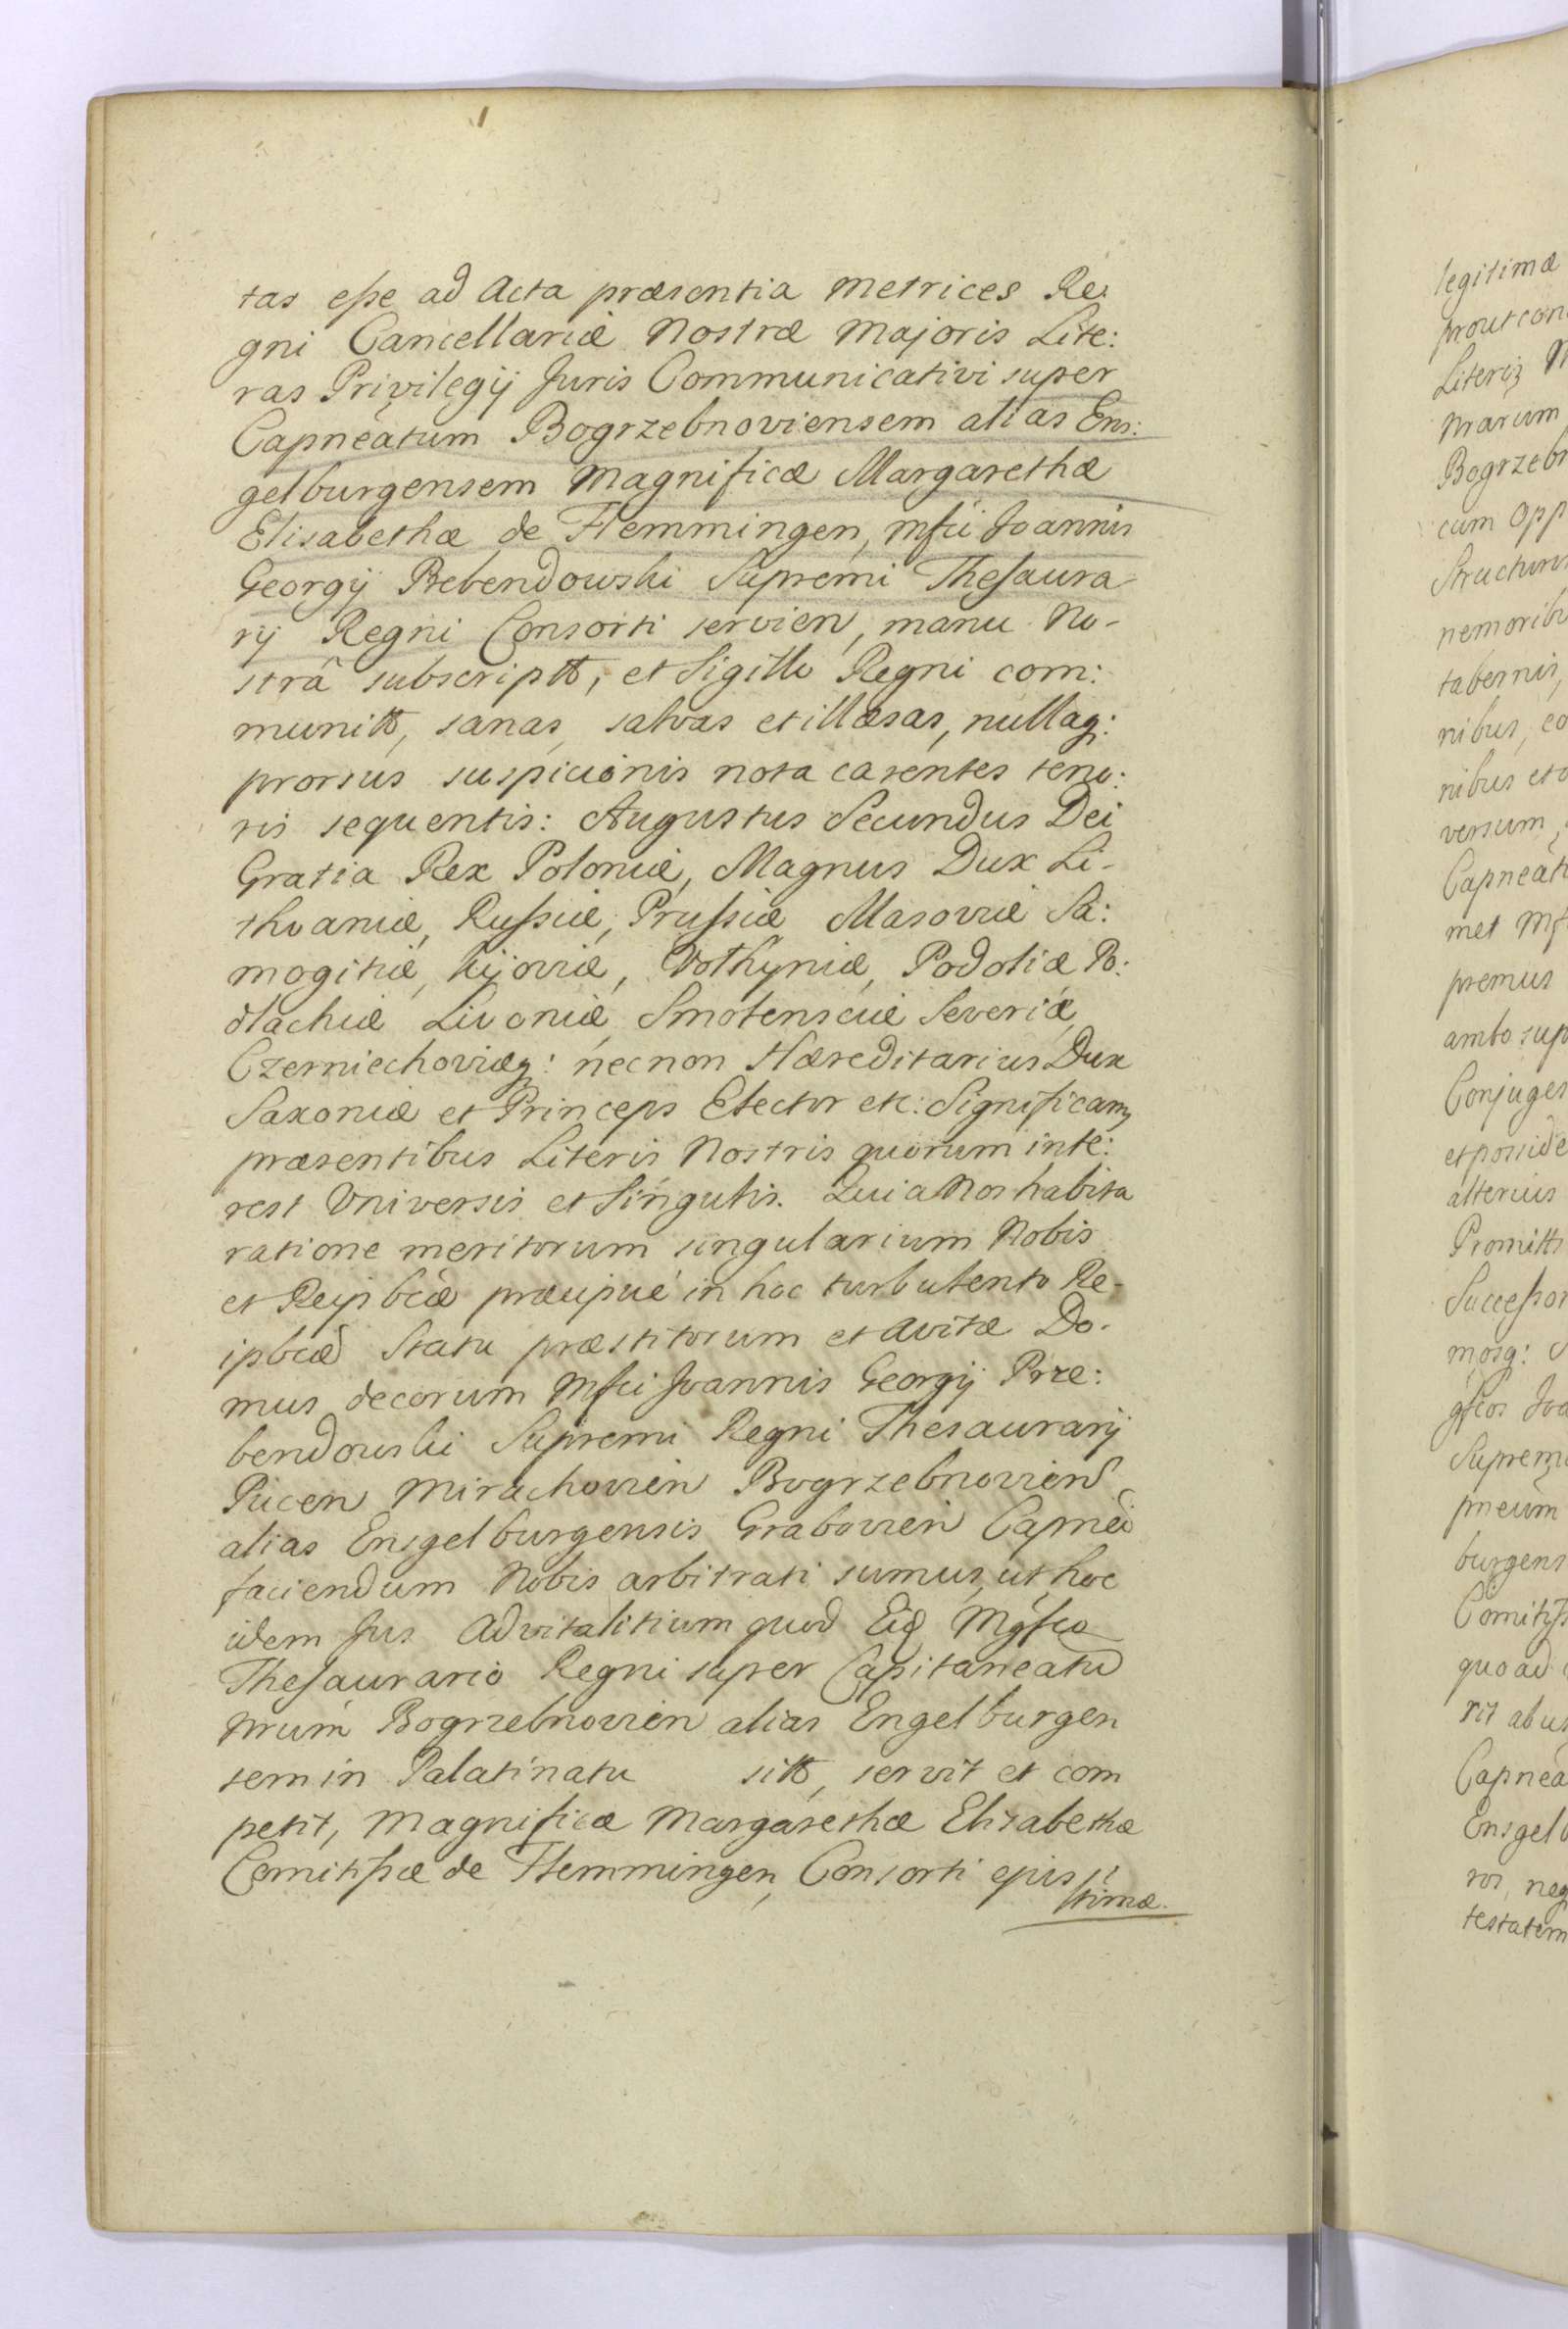 tas eſse ad Acta præsentia Metrices Re:
gni Cancellariæ Nostræ Majoris Lite:
ras Privilegij Juris Communicativi super
Capneatum Bogrzebnoviensem alias Ens:
gelburgensem Magnificæ Margarethæ
Elisabethæ de Flemmingen, Mfci Joannis
Georgij Prebendowski Supremi Theſaura
rij Regni Consorti servien, manu No-
strâ subscriptt, et Sigillo Regni com:
munitt, sanas, salvas et illæsas, nullaq:
prorsus suspicionis nota carentes teno:
ris sequentis: Augustus Secundus Dei
Gratia Rex Poloniæ, Magnus Dux Li-
thvaniæ, Ruſsiæ, Pruſsiæ Masoviæ Sa:
mogitiæ, Kijoviæ, Volhyniæ, Podoliæ Po:
dlachiæ Livoniæ Smolensciæ Severiæ
Czerniechoviæq: necnon Hæreditarius Dux
Saxoniæ et Princeps Elector etc: Significamꝫ
præsentibus Literis Nostris quorum inte:
rest Vniversis et Singulis. Quia Nos habita
ratione meritorum singularium Nobis
et Reipbcæ præcipuè in hoc turbulento Re-
ipbcæ Statu præstitorum et avitæ Do-
mus decorum Mfci Joannis Georgij Prze:
bendowski Supremi Regni Thesaurarij
Pucen Mirachovien Bogrzebnovien
alias Ensgelburgensis Grabovien Capnei
faciendum Nobis arbitrati sumus, ut hoc
idem Jus Advitalitium quod Eid Mgfco
Theſaurario Regni super Capitaneatu
Nrum Bogrzebnovien alias Engelburgen
sem in Palatinatu sitt, servit et com
petit, Magnificæ Margarethæ Elisabethæ
Comitiſsæ de Flemmingen, Consorti ejus
ſtimæ.
legitimæ
prout con
Literis N
Nrarum
Bogrzebn
cum Opp
Structuris
nemoribu
tabernis,
nibus, co
nibus et o
versum,
Capneat
met Mf
premus
ambo sup
Conjuges
et poside
alterius
Promitt
Succeſsor
mosq: S
gfcos Joa
Suprem
pneum
burgens
Comitiſs
quo ad
rit ab us
Capnea
Ensgelb
ros, neq
testatem